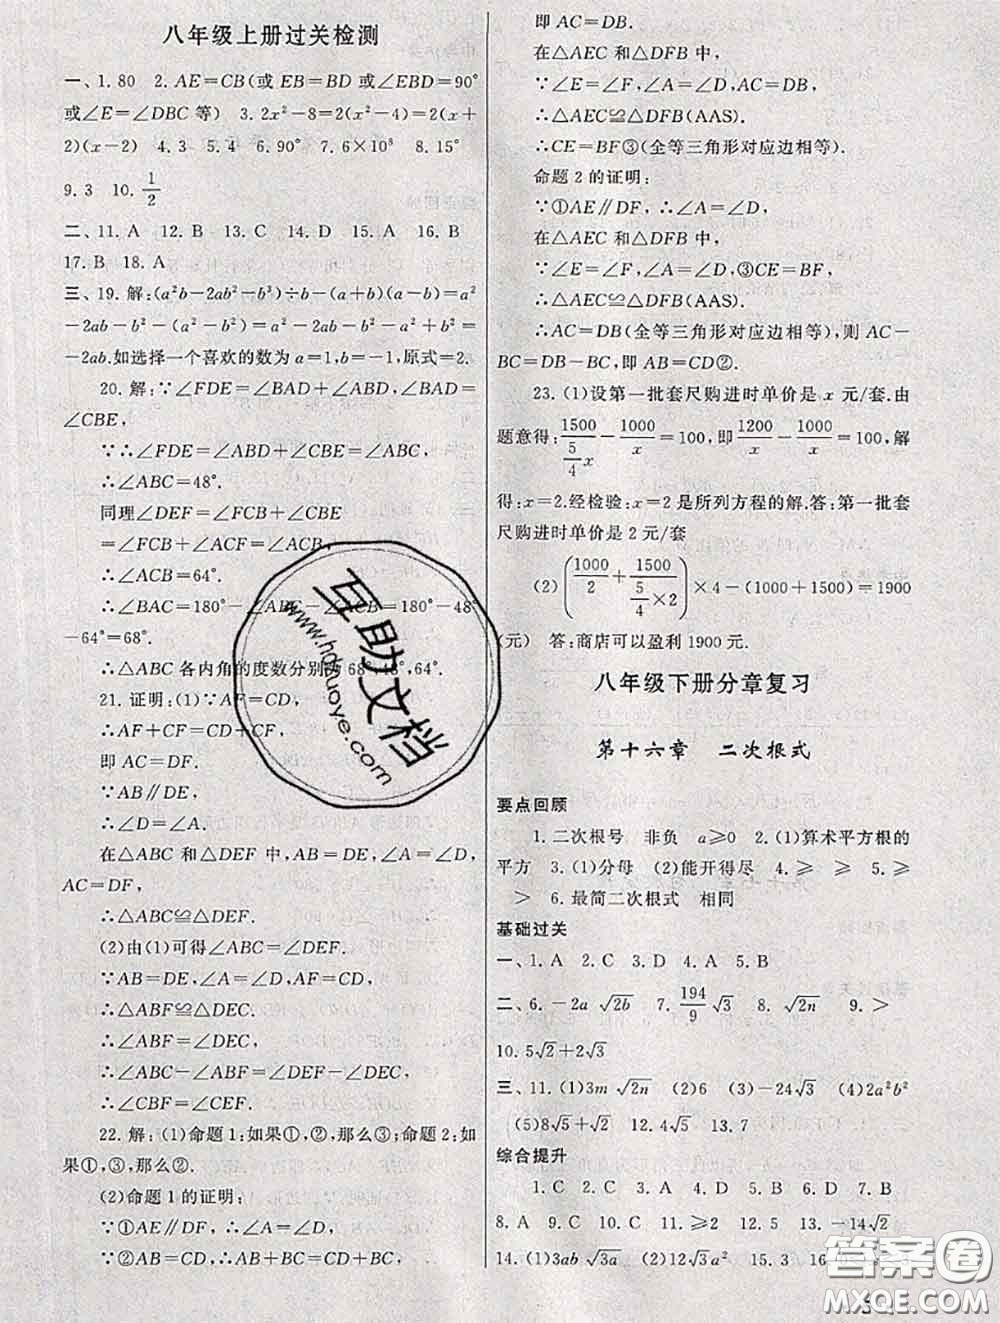 八年级上册过关检测
一、1.80　2. AE=CB(或 EB=BD 或∠EBD=90°
或∠E=∠DBC 等)　3. 2x²-8=2(x²-4)=2(x+
2)(x-2)　4. 3　5. 4　6. 90°　7. 6×10⁸　8. 15°
9. 3　10. 1/2
二、11. A　12. B　13. C　14. D　15. A　16. B
17. B　18. A
三、19. 解:(a²b-2ab²-b³)÷b-(a+b)(a-b)=a²
-2ab-b²-(a²-b²)=a²-2ab-b²-a²+b²=
-2ab.如选择一个喜欢的数为 a=1,b=-1,原式=2.
20. 解:∵∠FDE=∠BAD+∠ABD,∠BAD=
∠CBE,
∵∴∠FDE=∠ABD+∠CBE=∠ABC,
∴∠ABC=48°.
同理∠DEF=∠FCB+∠CBE
=∠FCB+∠ACF=∠ACB,
∴∠ACB=64°.
∴∠BAC=180°-∠ABC-∠ACB=180°-48°
-64°=68°.
∴△ABC 各内角的度数分别为 68°,48°,64°.
21. 证明:(1)∵AF=CD,
∴AF+CF=CD+CF,
即 AC=DF.
∵AB∥DE,
∴∠D=∠A.
在△ABC 和△DEF 中,AB=DE,∠A=∠D,
AC=DF,
∴△ABC≌△DEF.
(2)由(1)可得∠ABC=∠DEF.
∵AB=DE,∠A=∠D,AF=CD,
∴△ABF≌△DEC.
∴∠ABF=∠DEC,
∴∠ABC-∠ABF=∠DEF-∠DEC,
∴∠CBF=∠CEF.
22. 解:(1)命题 1:如果①,②,那么③;命题 2:如
果①,③,那么②.
(2)命题 1 的证明:
∵①AE∥DF,∴∠A=∠D,
∵②AB=CD,∴AB+BC=CD+BC,
即 AC=DB.
在△AEC 和△DFB 中,
∵∠E=∠F,∠A=∠D,AC=DB,
∴△AEC≌△DFB(AAS).
∴CE=BF③(全等三角形对应边相等).
命题 2 的证明:
∵①AE∥DF,∴∠A=∠D,
在△AEC 和△DFB 中,
∵∠E=∠F,∠A=∠D,③CE=BF,
∴△AEC≌△DFB(AAS).
∴AC=DB(全等三角形对应边相等),则 AC-
BC=DB-BC,即 AB=CD②.
23. (1)设第一批套尺购进时单价是 x 元/套.由
题意得:1500/(5/4 x)-1000/x=100,即1200/x-1000/x=100,解
得:x=2.经检验:x=2 是所列方程的解.答:第一批套
尺购进时单价是 2 元/套
(2)(1000/2+1500/(5/4×2))×4-(1000+1500)=1900
(元)　答:商店可以盈利 1900 元.
八年级下册分章复习
第十六章　二次根式
要点回顾
1. 二次根号　非负　a≥0　2. (1)算术平方根的
平方　3. (1)分母　(2)能开得尽　4. ≥　≥　5. ≥
>　6. 最简二次根式　相同
基础过关
一、1. A　2. C　3. D　4. A　5. B
二、6. -2a√2b　7. 194/9√3　8. √2n　9. >
10. 5√2+2√3
三、11. (1)3m√2n　(2)6　(3)-24√3　(4)2a²b²
(5)8√5+√6　12. 2√15　13. 7
综合提升
1. C　2. C　3. A　4. D　5. D　6. D　7. B
8. A　9. C　10. C　11. ≥2　12. >　13. -14√2
14. (1)3ab√3a　(2)12√3a²　15. 3　16.
互助文档
www.hdzuoye.com
答案圈
MXQE.COM